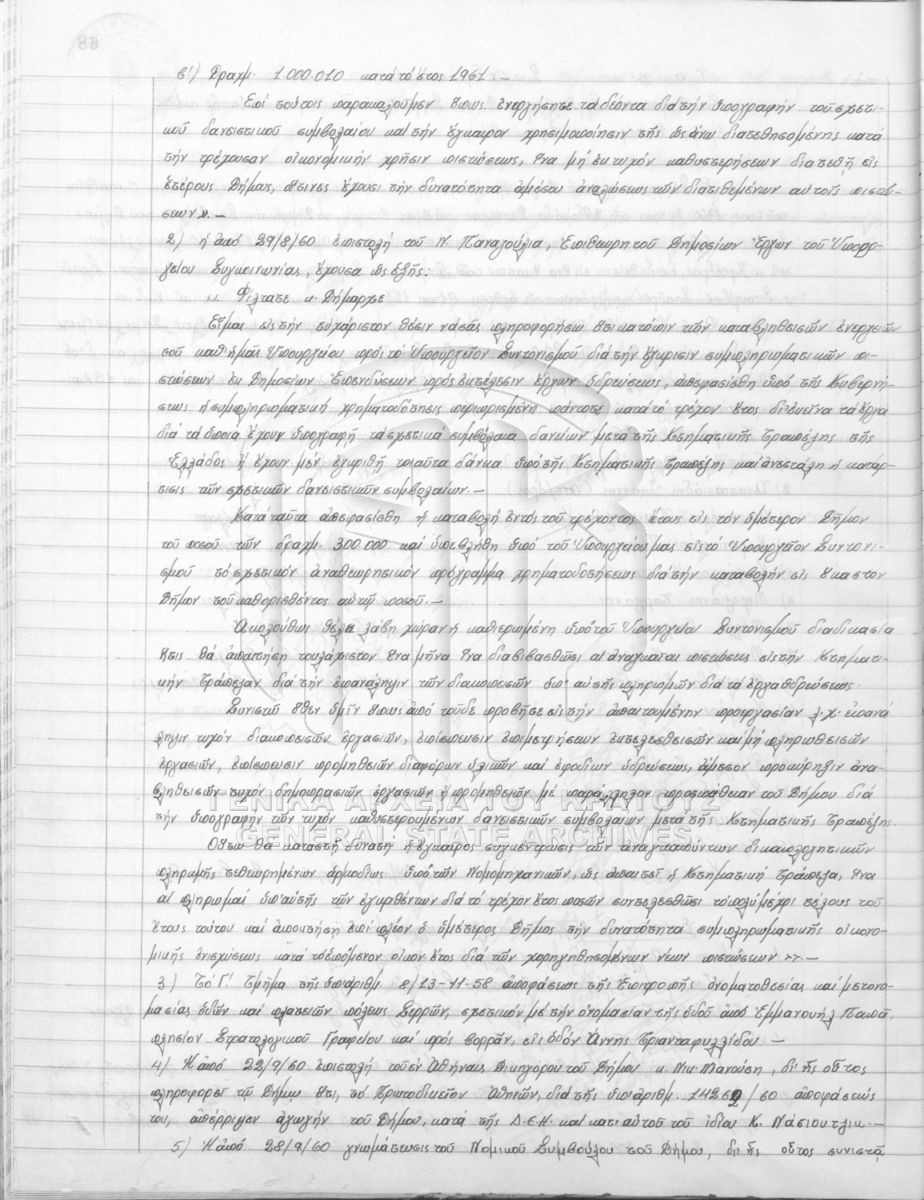 68
β') Δραχμ. 1.000.010 κατά τό ἔτος 1961.-
Ἐπί τούτοις παρακαλοῦμεν ὅπως ἐνεργήσητε τά δέοντα διά τήν ὑπογραφήν τοῦ σχετι-
κοῦ δανειστικοῦ συμβολαίου καί τήν ἔγκαιρον χρησιμοποίησιν τῆς ὡς ἄνω διατεθησομένης κατά
τήν τρέχουσαν οἰκονομικήν χρῆσιν πιστώσεως, ἵνα μή ἐκ τυχόν καθυστερήσεων διατεθῇ εἰς
ἑτέρους Δήμους, οἵτινες ἔχουσι τήν δυνατότητα ἀμέσου ἀναλώσεως τῶν διατιθεμένων αὐτοῖς πιστώ-
σεων».-
2) ἡ ἀπό 29/8/60 ἐπιστολή τοῦ Ν. Παναγούλια, Ἐπιθεωρητοῦ Δημοσίων Ἔργων τοῦ Ὑπουρ-
γείου Συγκοινωνίας, ἔχουσα ὡς ἑξῆς:
«Φίλτατε κ. Δήμαρχε
Εἶμαι εἰς τήν εὐχάριστον θέσιν νά σᾶς πληροφορήσω ὅτι κατόπιν τῶν καταβληθεισῶν ἐνεργειῶν
τοῦ καθ' ἡμᾶς Ὑπουργείου πρός τό Ὑπουργεῖον Συντονισμοῦ διά τήν ἔγκρισιν συμπληρωματικῶν πι-
στώσεων ἐκ Δημοσίων Ἐπενδύσεων πρός ἐκτέλεσιν ἔργων ὑδρεύσεως, ἀπεφασίσθη ὑπό τῆς Κυβερνή-
σεως ἡ συμπληρωματική χρηματοδότησις περιωρισμένη πάντοτε κατά τό τρέχον ἔτος δι' ἐκεῖνα τά ἔργα
διά τά ὁποῖα ἔχουν ὑπογραφῆ τά σχετικά συμβόλαια δανείων μετά τῆς Κτηματικῆς Τραπέζης τῆς
Ἑλλάδος ἤ ἔχουν μέν ἐγκριθῆ τοιαῦτα δάνεια ὑπό τῆς Κτηματικῆς Τραπέζης καί ἀνεστάλη ἡ κατάρ-
τισις τῶν σχετικῶν δανειστικῶν συμβολαίων.-
Κατά ταῦτα ἀπεφασίσθη ἡ καταβολή ἐντός τοῦ τρέχοντος ἔτους εἰς τόν ὑμέτερον Δῆμον
τοῦ ποσοῦ τῶν δραχμ. 300.000 καί ὑπεβλήθη ὑπό τοῦ Ὑπουργείου μας εἰς τό Ὑπουργεῖον Συντονι-
σμοῦ τό σχετικόν ἀναθεωρητικόν πρόγραμμα χρηματοδοτήσεως διά τήν καταβολήν εἰς ἕκαστον
Δῆμον τοῦ καθορισθέντος αὐτῷ ποσοῦ.-
Ἀκολούθως θέλει λάβῃ χώραν ἡ καθιερωμένη ὑπό τοῦ Ὑπουργείου Συντονισμοῦ διαδικασία
ἥτις θά ἀπαιτήσῃ τουλάχιστον ἕνα μῆνα ἵνα διαβιβασθῶσι αἱ ἀναγκαῖαι πιστώσεις εἰς τήν Κτηματι-
κήν Τράπεζαν διά τήν ἐπανάληψιν τῶν διακοπεισῶν ὑπ' αὐτῆς πληρωμῶν διά τά ἔργα ὑδρεύσεως.
Συνιστῶ ὅθεν ὑμῖν ὅπως ἀπό τοῦδε προβῆτε εἰς τήν ἀπαιτουμένην προεργασίαν λ.χ. ἐπανά
ληψιν τυχόν διακοπεισῶν ἐργασιῶν, ἐπίσπευσιν ἐπιμετρήσεων ἐκτελεσθεισῶν καί μή πληρωθεισῶν
ἐργασιῶν, ἐπίσπευσιν προμηθειῶν διαφόρων ὑλικῶν καί ἐφοδίων ὑδρεύσεως, ἄμεσον προκήρυξιν ἀνα-
βληθεισῶν τυχόν δημοπρασιῶν ἐργασιῶν ἤ προμηθειῶν μέ παράλληλον προσπάθειαν τοῦ Δήμου διά
τήν ὑπογραφήν τῶν τυχόν καθυστερουμένων δανειστικῶν συμβολαίων μετά τῆς Κτηματικῆς Τραπέζης.
Οὕτω θά καταστῇ δυνατή ἡ ἔγκαιρος συγκέντρωσις τῶν ἀναγκαιούντων δικαιολογητικῶν
πληρωμῆς τεθεωρημένων ἁρμοδίως ὑπό τῶν Νομομηχανικῶν, ὡς ἀπαιτεῖ ἡ Κτηματική Τράπεζα, ἵνα
αἱ πληρωμαί ὑπ' αὐτῆς τῶν ἐγκριθέντων διά τό τρέχον ἔτος ποσῶν συντελεσθῶσι τό πολύ μέχρι τέλους τοῦ
ἔτους τούτου καί ἀποκτήσῃ ἐπί πλέον ὁ ὑμέτερος Δῆμος τήν δυνατότητα συμπληρωματικῆς οἰκονο-
μικῆς ἐνισχύσεως κατά τό ἑπόμενον οἰκον. ἔτος διά τῶν χορηγηθησομένων νέων πιστώσεων».-
3) Τό Γ'. Τμῆμα τῆς ὑπ' ἀριθμ. 8/13-11-58 ἀποφάσεως τῆς Ἐπιτροπῆς ὀνοματοθεσίας καί μετονο-
μασίας ὁδῶν καί πλατειῶν πόλεως Σερρῶν, σχετικόν μέ τήν ὀνομασίαν τῆς ὁδοῦ ἀπό Ἐμμανουήλ Παπᾶ
πλησίον Στρατολογικοῦ Γραφείου καί πρός βορρᾶν, εἰς ὁδόν Ἄννης Τριανταφυλλίδου.-
4) Ἡ ἀπό 22/9/60 ἐπιστολή τοῦ ἐν Ἀθήναις Δικηγόρου τοῦ Δήμου κ. Νικ. Μανούση, δι' ἧς οὗτος
πληροφορεῖ τῷ Δήμῳ ὅτι, τό Πρωτοδικεῖον Ἀθηνῶν, διά τῆς ὑπ' ἀριθμ. 14252/60 ἀποφάσεώς
του, ἀπέρριψεν ἀγωγήν τοῦ Δήμου, κατά τῆς Δ.Ε.Η. καί κατ' αὐτοῦ τοῦ ἰδίου Κ. Νάσιουτζικ.-
5) Ἡ ἀπό 28/9/60 γνωμάτευσις τοῦ Νομικοῦ Συμβούλου τοῦ Δήμου, δι' ἧς οὗτος συνιστᾷ
ΓΕΝΙΚΑ ΑΡΧΕΙΑ ΤΟΥ ΚΡΑΤΟΥΣ
GENERAL STATE ARCHIVES